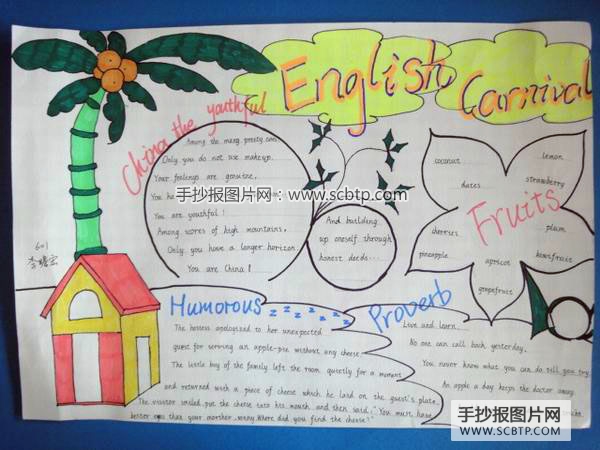 English Carnival
China the youthful
Among the many pretty ones
Only you do not use makeup.
Your feelings are genuine,
You ha
You are youthful!
Among scores of high mountains,
Only you have a longer horizon.
You are China!
And building
up oneself through
honest deeds...
Fruits
coconut
lemon
dates
strawberry
cherries
plum
pineapple
apricot
grapefruit
手抄报图片网:www.scbtp.com
601
Humorous zzzzzzz
The hostess apologized to her unexpected
guest for serving an apple-pie without any cheese.
The little boy of the family left the room quietly for a moment
and returned with a piece of cheese which he laid on the guest's plate.
The visitor smiled, put the cheese into his mouth and then said: "You must have
better eyes than your morther, sonny. Where did you find the cheese?"
Proverb
Live and learn.
No one can call back yesterday.
You never know what you can do till you try.
An apple a day keeps the doctor away.
手抄报图片网
WWW.SCBTP.COM